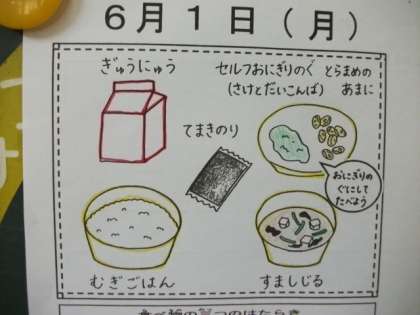 6月1日(月)
ぎゅうにゅう
セルフおにぎりのぐ
(さけとだいこんば)
とらまめの
あまに
てまきのり
おにぎりの
ぐにして
たべよう
むぎごはん
すましじる